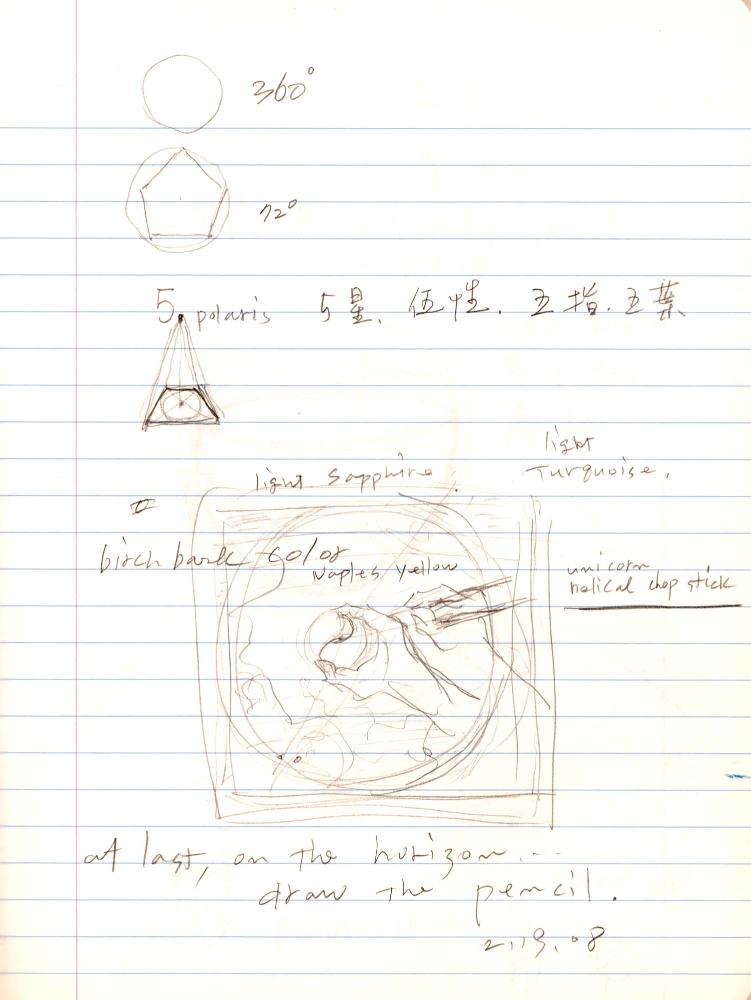 360°
72°
5. polaris 5星. 伍性. 五指. 五葉
light
Turquoise.
light sapphire
birch bark color
Naples yellow
unicorn
helical chop stick
at last, on the horizon...
draw the pencil.
2.19.08